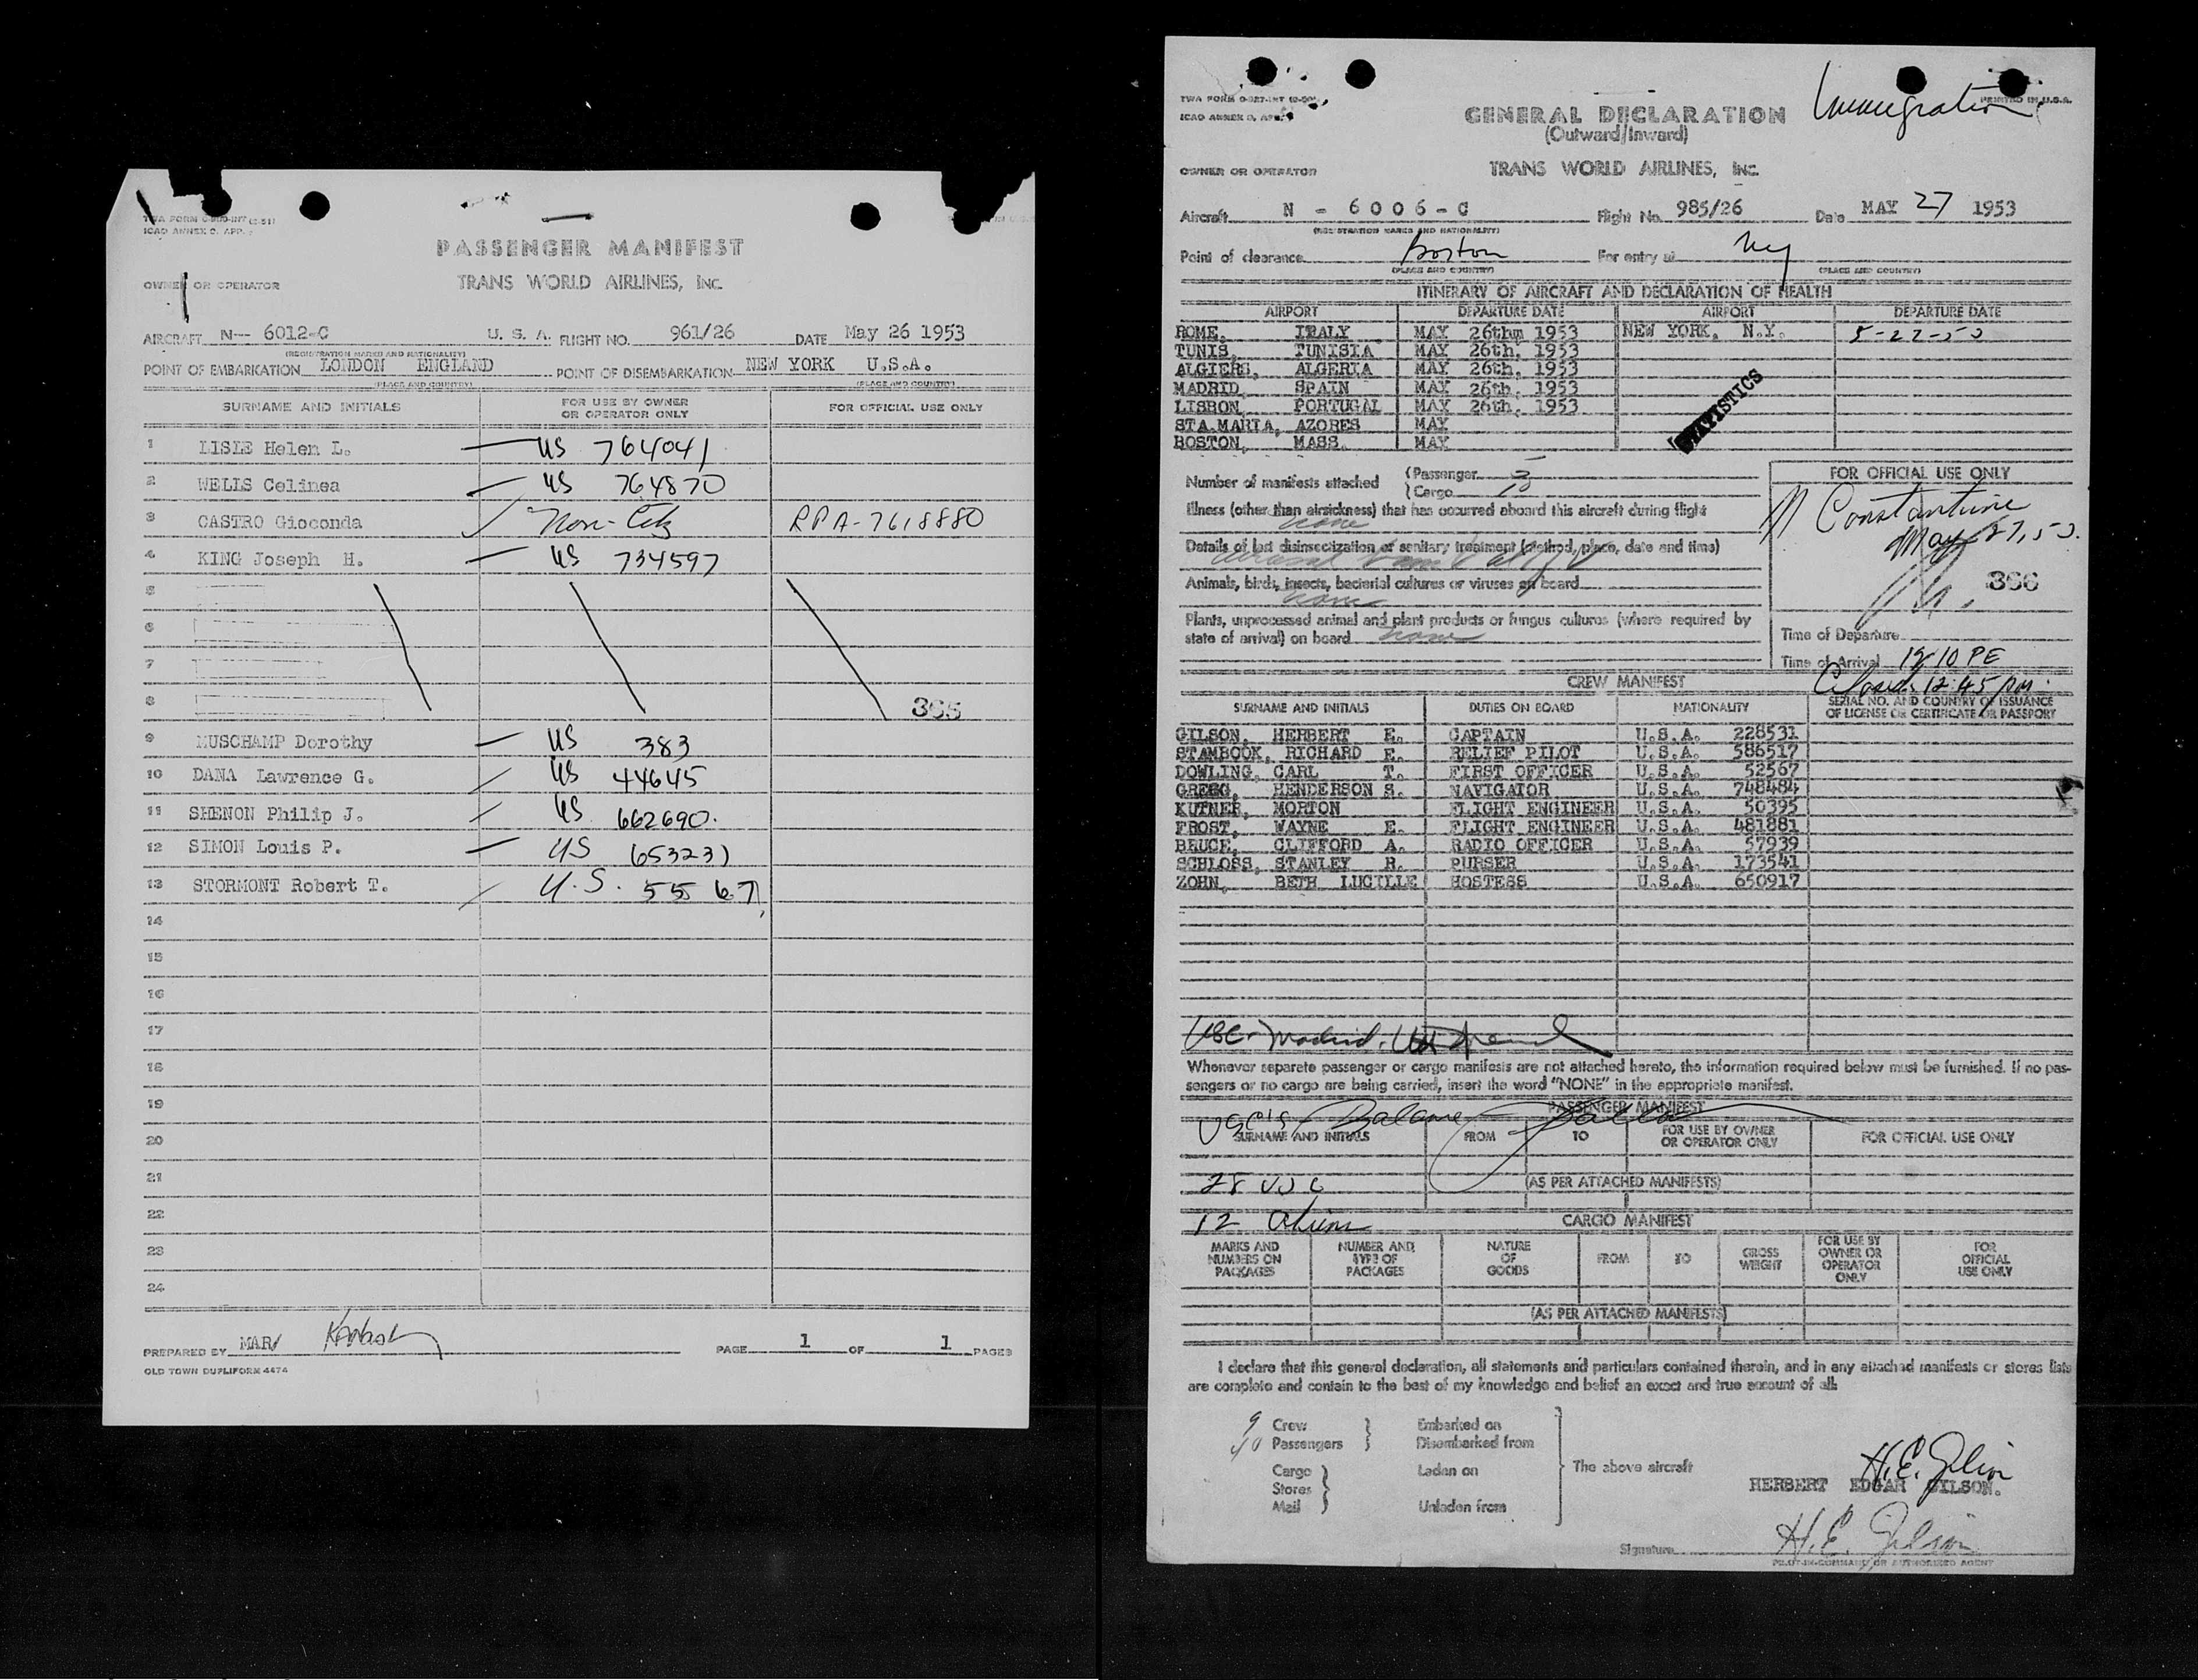 TWA FORM
ICAO ANNEX 9, APP.
PASSENGER MANIFEST
OWNER OR OPERATOR
TRANS WORLD AIRLINES, INC.
AIRCRAFT N-- 6012-C U. S. A. FLIGHT NO. 961/26 DATE May 26 1953
(REGISTRATION MARKS AND NATIONALITY)
POINT OF EMBARKATION LONDON ENGLAND POINT OF DISEMBARKATION NEW YORK U.S.A.
(PLACE AND COUNTRY) (PLACE AND COUNTRY)
SURNAME AND INITIALS FOR USE BY OWNER OR OPERATOR ONLY FOR OFFICIAL USE ONLY
1 LISLE Helen L. US 764041
2 WELLS Celinea US 764870
3 CASTRO Gioconda RPA-7618880
4 KING Joseph H. US 734597
5
6
7
8 365
9 MUSCHAMP Dorothy US 383
10 DANA Lawrence G. US 44645
11 SHENON Philip J. US 662690.
12 SIMON Louis P. US
13 STORMONT Robert T. U.S. 55 67
14
15
16
17
18
19
20
21
22
23
24
PREPARED BY MAR/ PAGE 1 OF 1 PAGES
OLD TOWN DUPLIFORM 4474
TWA FORM
ICAO ANNEX 9, APP.
PRINTED IN U.S.A.
Immigration
GENERAL DECLARATION
(Outward/Inward)
OWNER OR OPERATOR TRANS WORLD AIRLINES, INC.
Aircraft N - 6 0 0 6 - C Flight No. 985/26 Date MAY 27 1953
(REGISTRATION MARKS AND NATIONALITY)
Point of clearance Boston For entry at NY
(PLACE AND COUNTRY) (PLACE AND COUNTRY)
ITINERARY OF AIRCRAFT AND DECLARATION OF HEALTH
AIRPORT DEPARTURE DATE AIRPORT DEPARTURE DATE
ROME, ITALY MAY 26thm 1953 NEW YORK, N.Y. 5-27-53
TUNIS, TUNISIA MAY 26th, 1953
ALGIERS, ALGERIA MAY 26th, 1953
MADRID, SPAIN MAY 26th, 1953
LISBON, PORTUGAL MAY 26th, 1953
STA.MARIA, AZORES MAY
BOSTON, MASS. MAY
STATISTICS
Number of manifests attached (Passenger
(Cargo
FOR OFFICIAL USE ONLY
Illness (other than airsickness) that has occurred aboard this aircraft during flight
none
Details of last disinsectization or sanitary treatment (method, place, date and time)
Animals, birds, insects, bacterial cultures or viruses on board
none
Plants, unprocessed animal and plant products or fungus cultures (where required by
state of arrival) on board none
Constantine
May 27, 53.
366
Time of Departure
Time of Arrival 1210 PE
Closed 12:45 PM.
CREW MANIFEST
SURNAME AND INITIALS DUTIES ON BOARD NATIONALITY SERIAL NO. AND COUNTRY OF ISSUANCE OF LICENSE OR CERTIFICATE OR PASSPORT
GILSON, HERBERT E. CAPTAIN U.S.A. 228531
STAMBOOK, RICHARD E. RELIEF PILOT U.S.A. 586517
DOWLING, CARL T. FIRST OFFICER U.S.A. 52567
GREGG, HENDERSON S. NAVIGATOR U.S.A. 748484
KUTNER, MORTON FLIGHT ENGINEER U.S.A. 50395
FROST, WAYNE E. FLIGHT ENGINEER U.S.A. 481881
BRUCE, CLIFFORD A. RADIO OFFICER U.S.A. 57939
SCHLOSS, STANLEY R. PURSER U.S.A. 173541
ZOHN, BETH LUCILLE HOSTESS U.S.A. 650917
Madrid
Whenever separate passenger or cargo manifests are not attached hereto, the information required below must be furnished. If no pas-
sengers or no cargo are being carried, insert the word "NONE" in the appropriate manifest.
PASSENGER MANIFEST
USC's Balance
SURNAME AND INITIALS FROM TO FOR USE BY OWNER OR OPERATOR ONLY FOR OFFICIAL USE ONLY
28 USC (AS PER ATTACHED MANIFESTS)
12 Aliens CARGO MANIFEST
MARKS AND NUMBERS ON PACKAGES NUMBER AND TYPE OF PACKAGES NATURE OF GOODS FROM TO GROSS WEIGHT FOR USE BY OWNER OR OPERATOR ONLY FOR OFFICIAL USE ONLY
(AS PER ATTACHED MANIFESTS)
I declare that this general declaration, all statements and particulars contained therein, and in any attached manifests or stores lists
are complete and contain to the best of my knowledge and belief an exact and true account of all:
9 Crew Embarked on
40 Passengers Disembarked from
Cargo Laden on The above aircraft
Stores
Mail Unladen from
H.E. Gilson
HERBERT EDGAR GILSON.
Signature H.E. Gilson
PILOT-IN-COMMAND OR AUTHORIZED AGENT